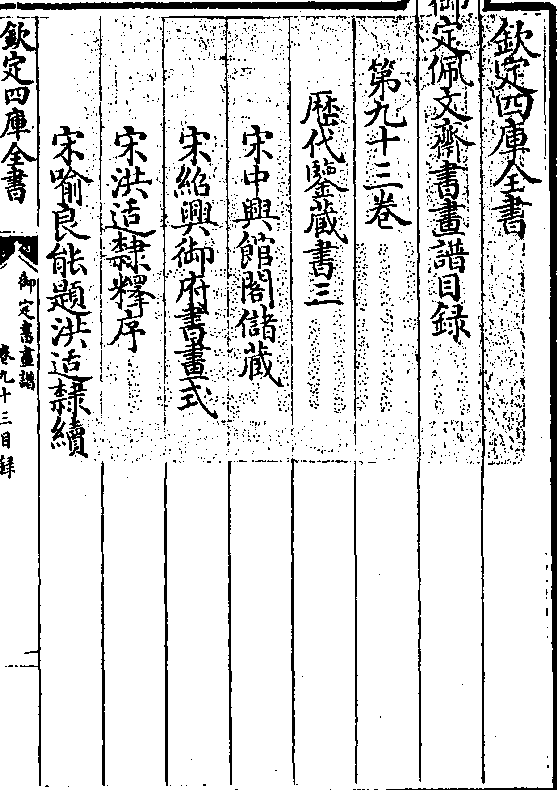 欽定四庫全書
御定佩文齋書畫譜目録
第九十三卷
歴代鑒藏書三
宋中興館閣儲藏
宋紹興御府書畫式
宋洪适隸釋序
宋喻良能題洪适隸續
欽定四庫全書
御定書畫譜
卷九十三目録
一